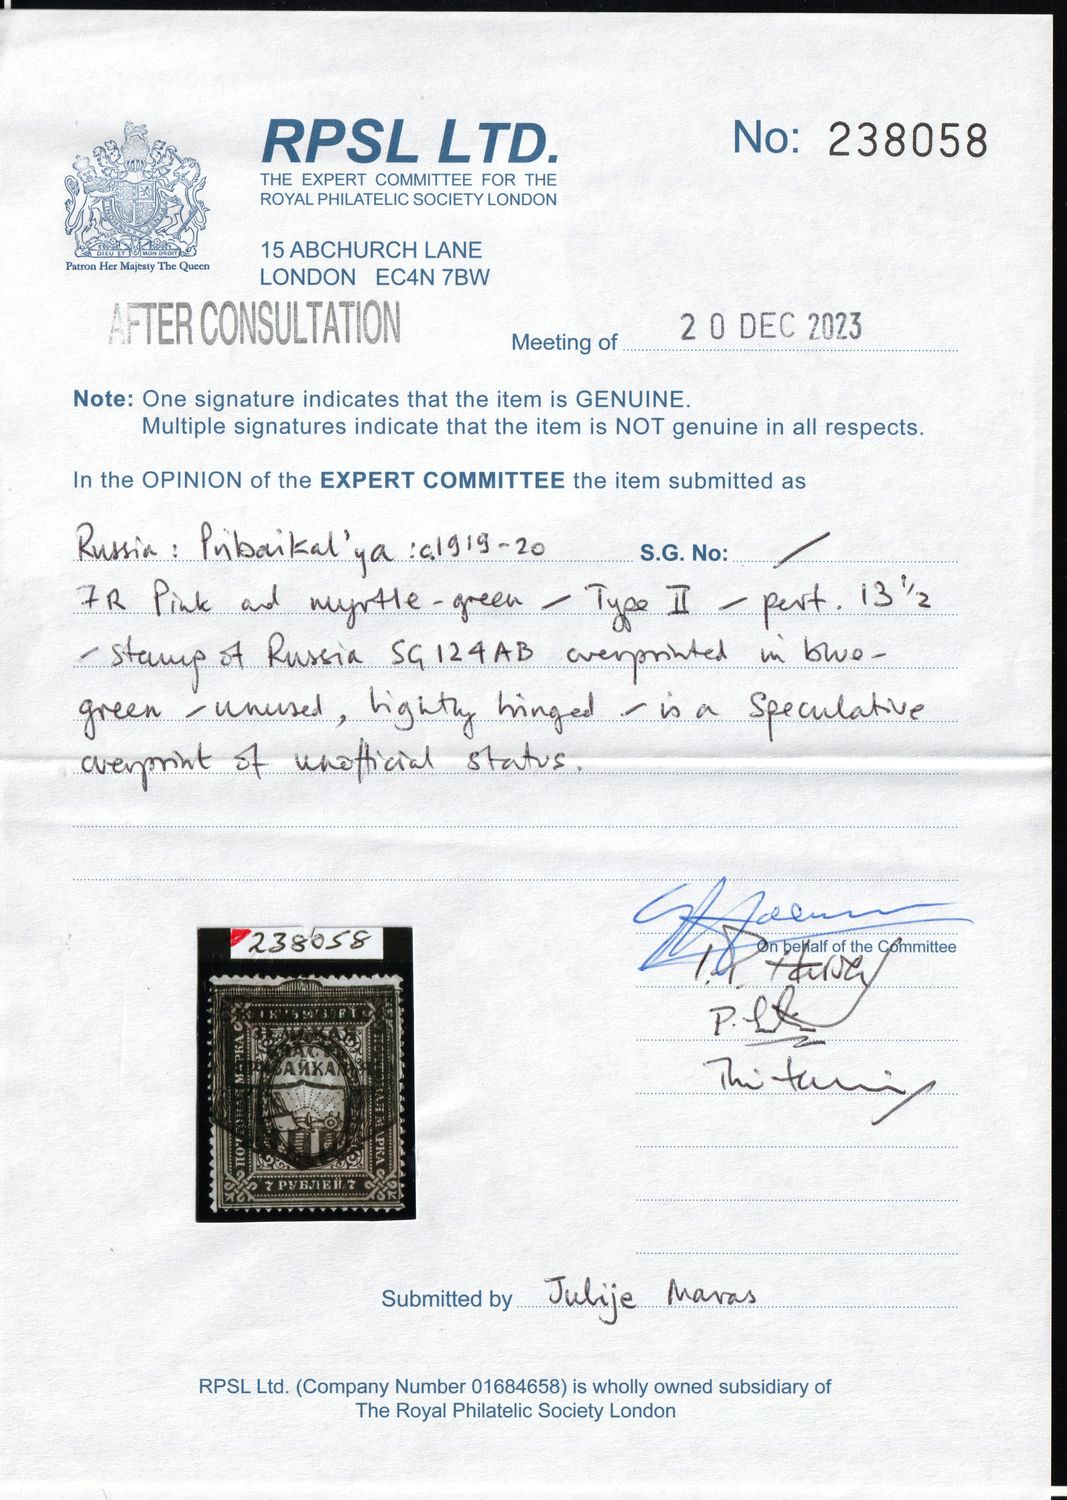 RPSL LTD.
THE EXPERT COMMITTEE FOR THE
ROYAL PHILATELIC SOCIETY LONDON
No: 238058
DIEU ET MON DROIT
Patron Her Majesty The Queen
15 ABCHURCH LANE
LONDON EC4N 7BW
AFTER CONSULTATION
Meeting of 20 DEC 2023
Note: One signature indicates that the item is GENUINE.
Multiple signatures indicate that the item is NOT genuine in all respects.
In the OPINION of the EXPERT COMMITTEE the item submitted as
Russia: Pribaikal'ya :c.1919-20 S.G. No: /
7R Pink and myrtle-green - Type II - perf. 13½
- stamp of Russia SG124AB overprinted in blue-
green - unused, lightly hinged - is a speculative
overprint of unofficial status.
On behalf of the Committee
238058
ПОЧТОВАЯ МАРКА
7 РУБЛЕЙ 7
Submitted by Julije Maras
RPSL Ltd. (Company Number 01684658) is wholly owned subsidiary of
The Royal Philatelic Society London